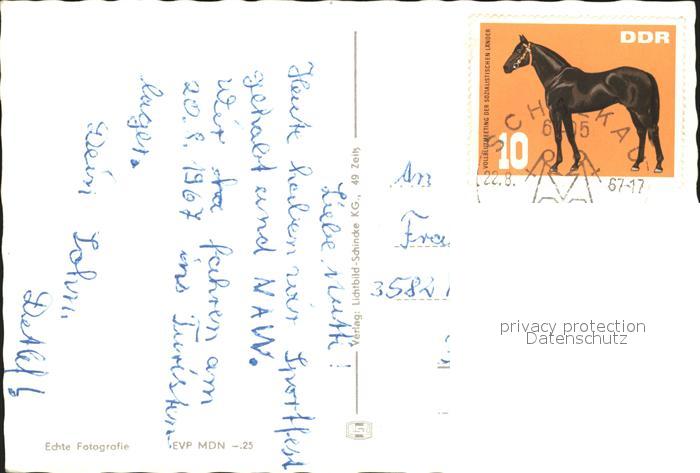 Liebe Mutti!
Heute haben wir Sportfest
gehabt und NAW.
Wir fahren am
20.8.1967 ins Turisten-
lager.
Dein Sohn,
Detlef
Echte Fotografie
EVP MDN –.25
Verlag: Lichtbild-Schincke KG., 49 Zeitz
An
Fra
3582
DDR
VOLLBLUTMEETING DER SOZIALISTISCHEN LÄNDER
10
SCHKAU
22.8. 67-17
privacy protection
Datenschutz